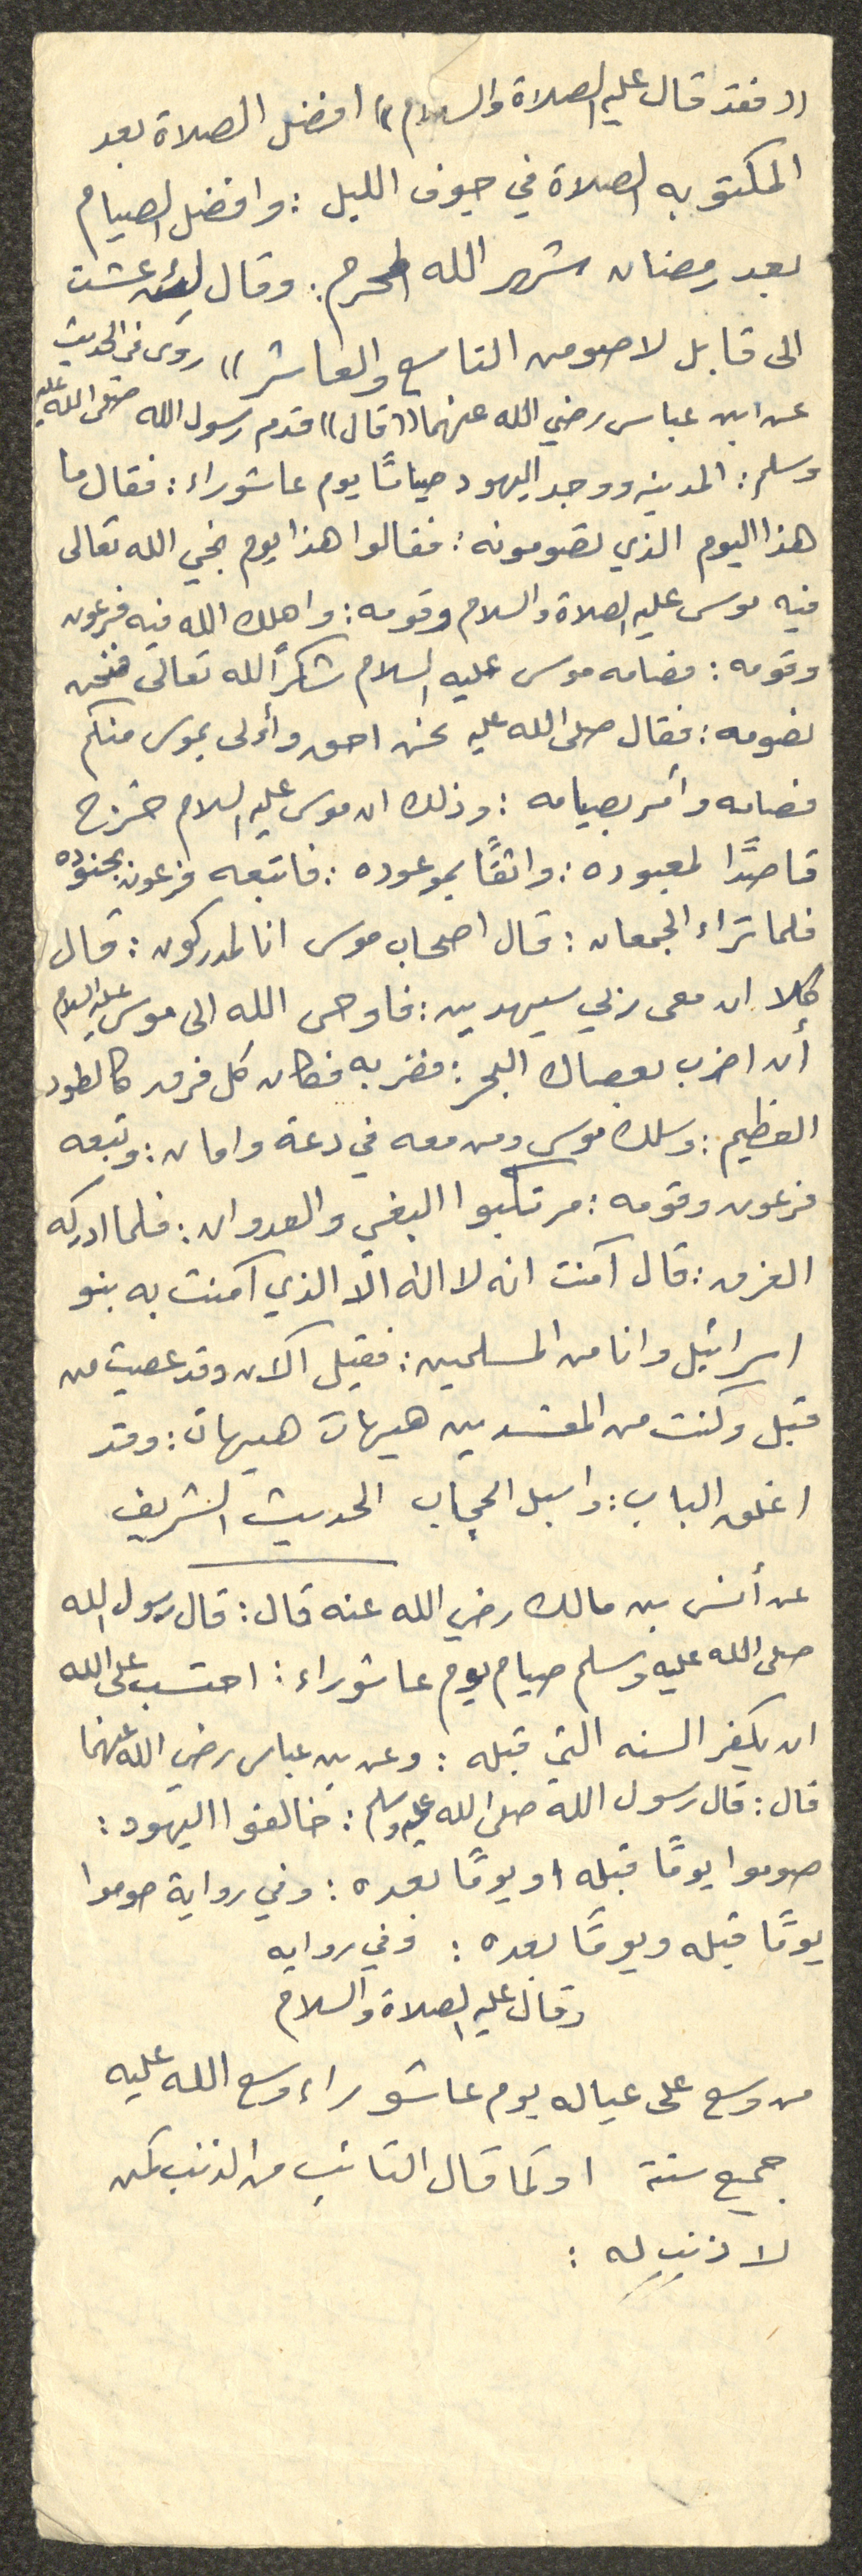 (( فقد قال عليه الصلاة والسلام )) افضل الصلاة بعد
المكتوبه الصلاة في جوف الليل : وافضل الصيام
بعد رمضان شهر الله المحرم : وقال لئن عشت
الى قابل لاصومن التاسع والعاشر )) روى في الحديث
عن ابن عباس رضي الله عنهما (( قال )) قدم رسول الله صلى الله عليه
وسلم : المدينه ووجد اليهود صيامًا يوم عاشوراء : فقال ما
هذا اليوم الذي تصومونه : فقالوا هذا يوم نجي الله تعالى
فيه موسى عليه الصلاة والسلام وقومه : واهلك الله فيه فرعون
وقومه : فصامه موسى عليه السلام شكرًا لله تعالى فنحن
نصومه : فقال صلى الله عليه نحن احق وأولى بموسى منكم
فصامه وأمر بصيامه : وذلك ان موسى عليه السلام خرج
قاصدًا لمعبوده : واثقًا بموعوده : فاتبعه فرعون بجنوده
فلما تراء الجمعان : قال اصحاب موسى انا لمدركون : قال
كلا ان معى ربي سيهدين : فاوحى الله الى موسى عليه السلام
أن اضرب بعصاك البحر : فضربه فكان كل فرق كالطود
العظيم : وسلك موسى ومن معه في دعة وامان : وتبعه
فرعون وقومه : مرتكبوا البغي والعدوان : فلما ادركه
الغرق : قال آمنت انه لا اله الا الذي آمنت به بنو
اسرائيل وانا من المسلمين : فقيل آلان وقد عصيت من
قبل وكنت من المفسدين هيهات هيهات : وقد
اغلق الباب : واسبل الحجاب الحديث الشريف
عن أنس بن مالك رضي الله عنه قال : قال رسول الله
صلى الله عليه وسلم صيام يوم عاشوراء : احتسب على الله
ان يكفر السنه التي قبله : وعن بن عباس رضي الله عنهما
قال : قال رسول الله صلى الله عليه وسلم : خالفوا اليهود :
صوموا يومًا قبله او يومًا بعده : وفي رواية صوموا
يومًا قبله ويومًا بعده : وفي روايه
وقال عليه الصلاة والسلام
من وسع على عياله يوم عاشوراء وسع الله عليه
جميع سنة او كما قال التائب من الذنب كمن
لا ذنب له :